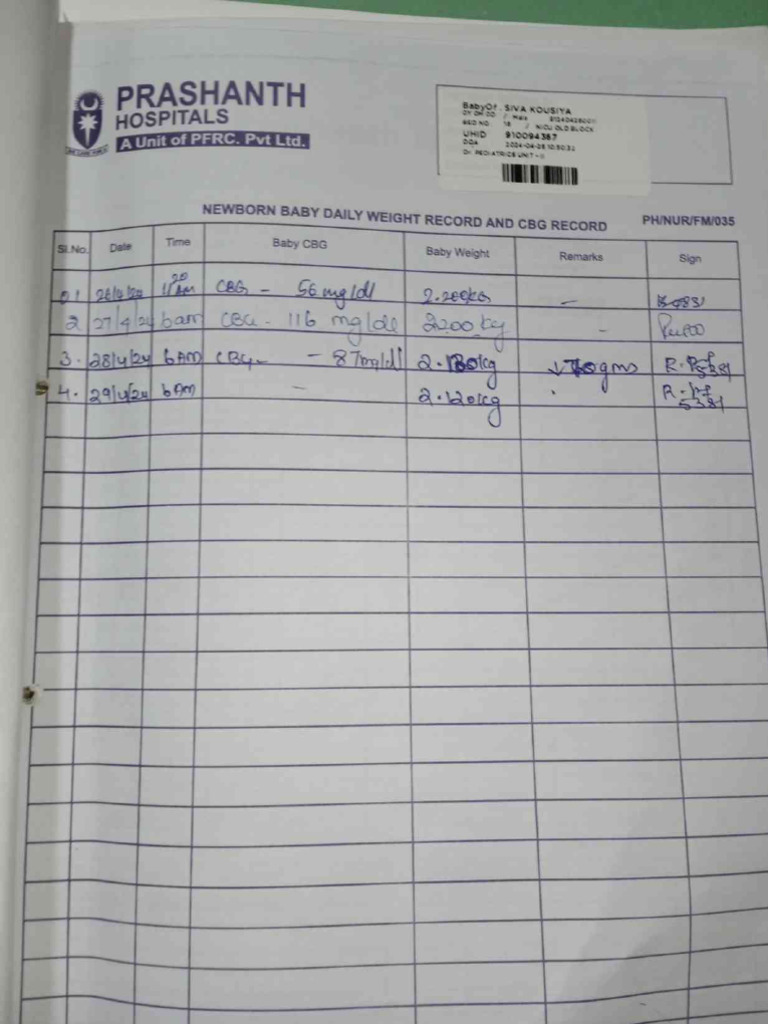 PRASHANTH
HOSPITALS
A Unit of PFRC. Pvt Ltd.
BabyOf . SIVA KOUSIYA
0Y 0M 0D / Male
BED NO 18 / NICU OLD BLOCK
UHID 910094387
DOA
Dr. PEDIATRICS UNIT - II
NEWBORN BABY DAILY WEIGHT RECORD AND CBG RECORD PH/NUR/FM/035
Sl.No. Date Time Baby CBG Baby Weight Remarks Sign
01 CBG - 56 mg/dl 2.200kg -
2 27/4/24 6am CBG - 116 mg/dl 2200 kg -
3. 28/4/24 6AM CBG - 87mg/dl kg ↓ gms R. 5381
4. 29/4/24 6AM - 2.120kg R. 5381